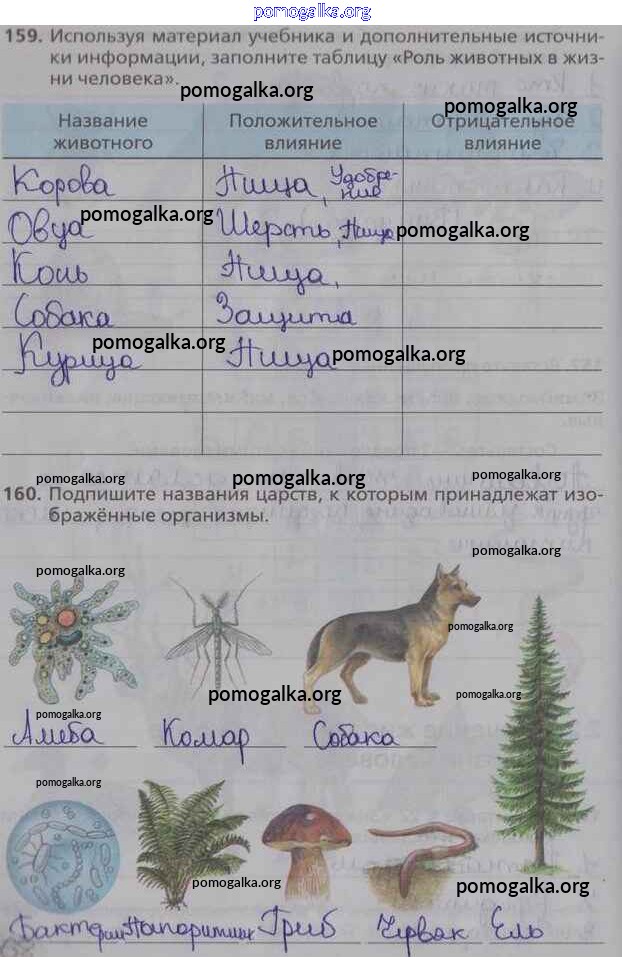 pomogalka.org
159. Используя материал учебника и дополнительные источни-
ки информации, заполните таблицу «Роль животных в жиз-
ни человека».
pomogalka.org
pomogalka.org
Название животного
Положительное влияние
Отрицательное влияние
Корова
Пища, Удобре-
ние
Овца
pomogalka.org
Шерсть, Пища
pomogalka.org
Конь
Пища,
Собака
Защита
Курица
pomogalka.org
Пища
pomogalka.org
pomogalka.org
pomogalka.org
pomogalka.org
160. Подпишите названия царств, к которым принадлежат изо-
бражённые организмы.
pomogalka.org
pomogalka.org
pomogalka.org
pomogalka.org
pomogalka.org
pomogalka.org
Амеба
Комар
Собака
pomogalka.org
pomogalka.org
pomogalka.org
Бактерии
Папоротник
Гриб
Червяк
Ель